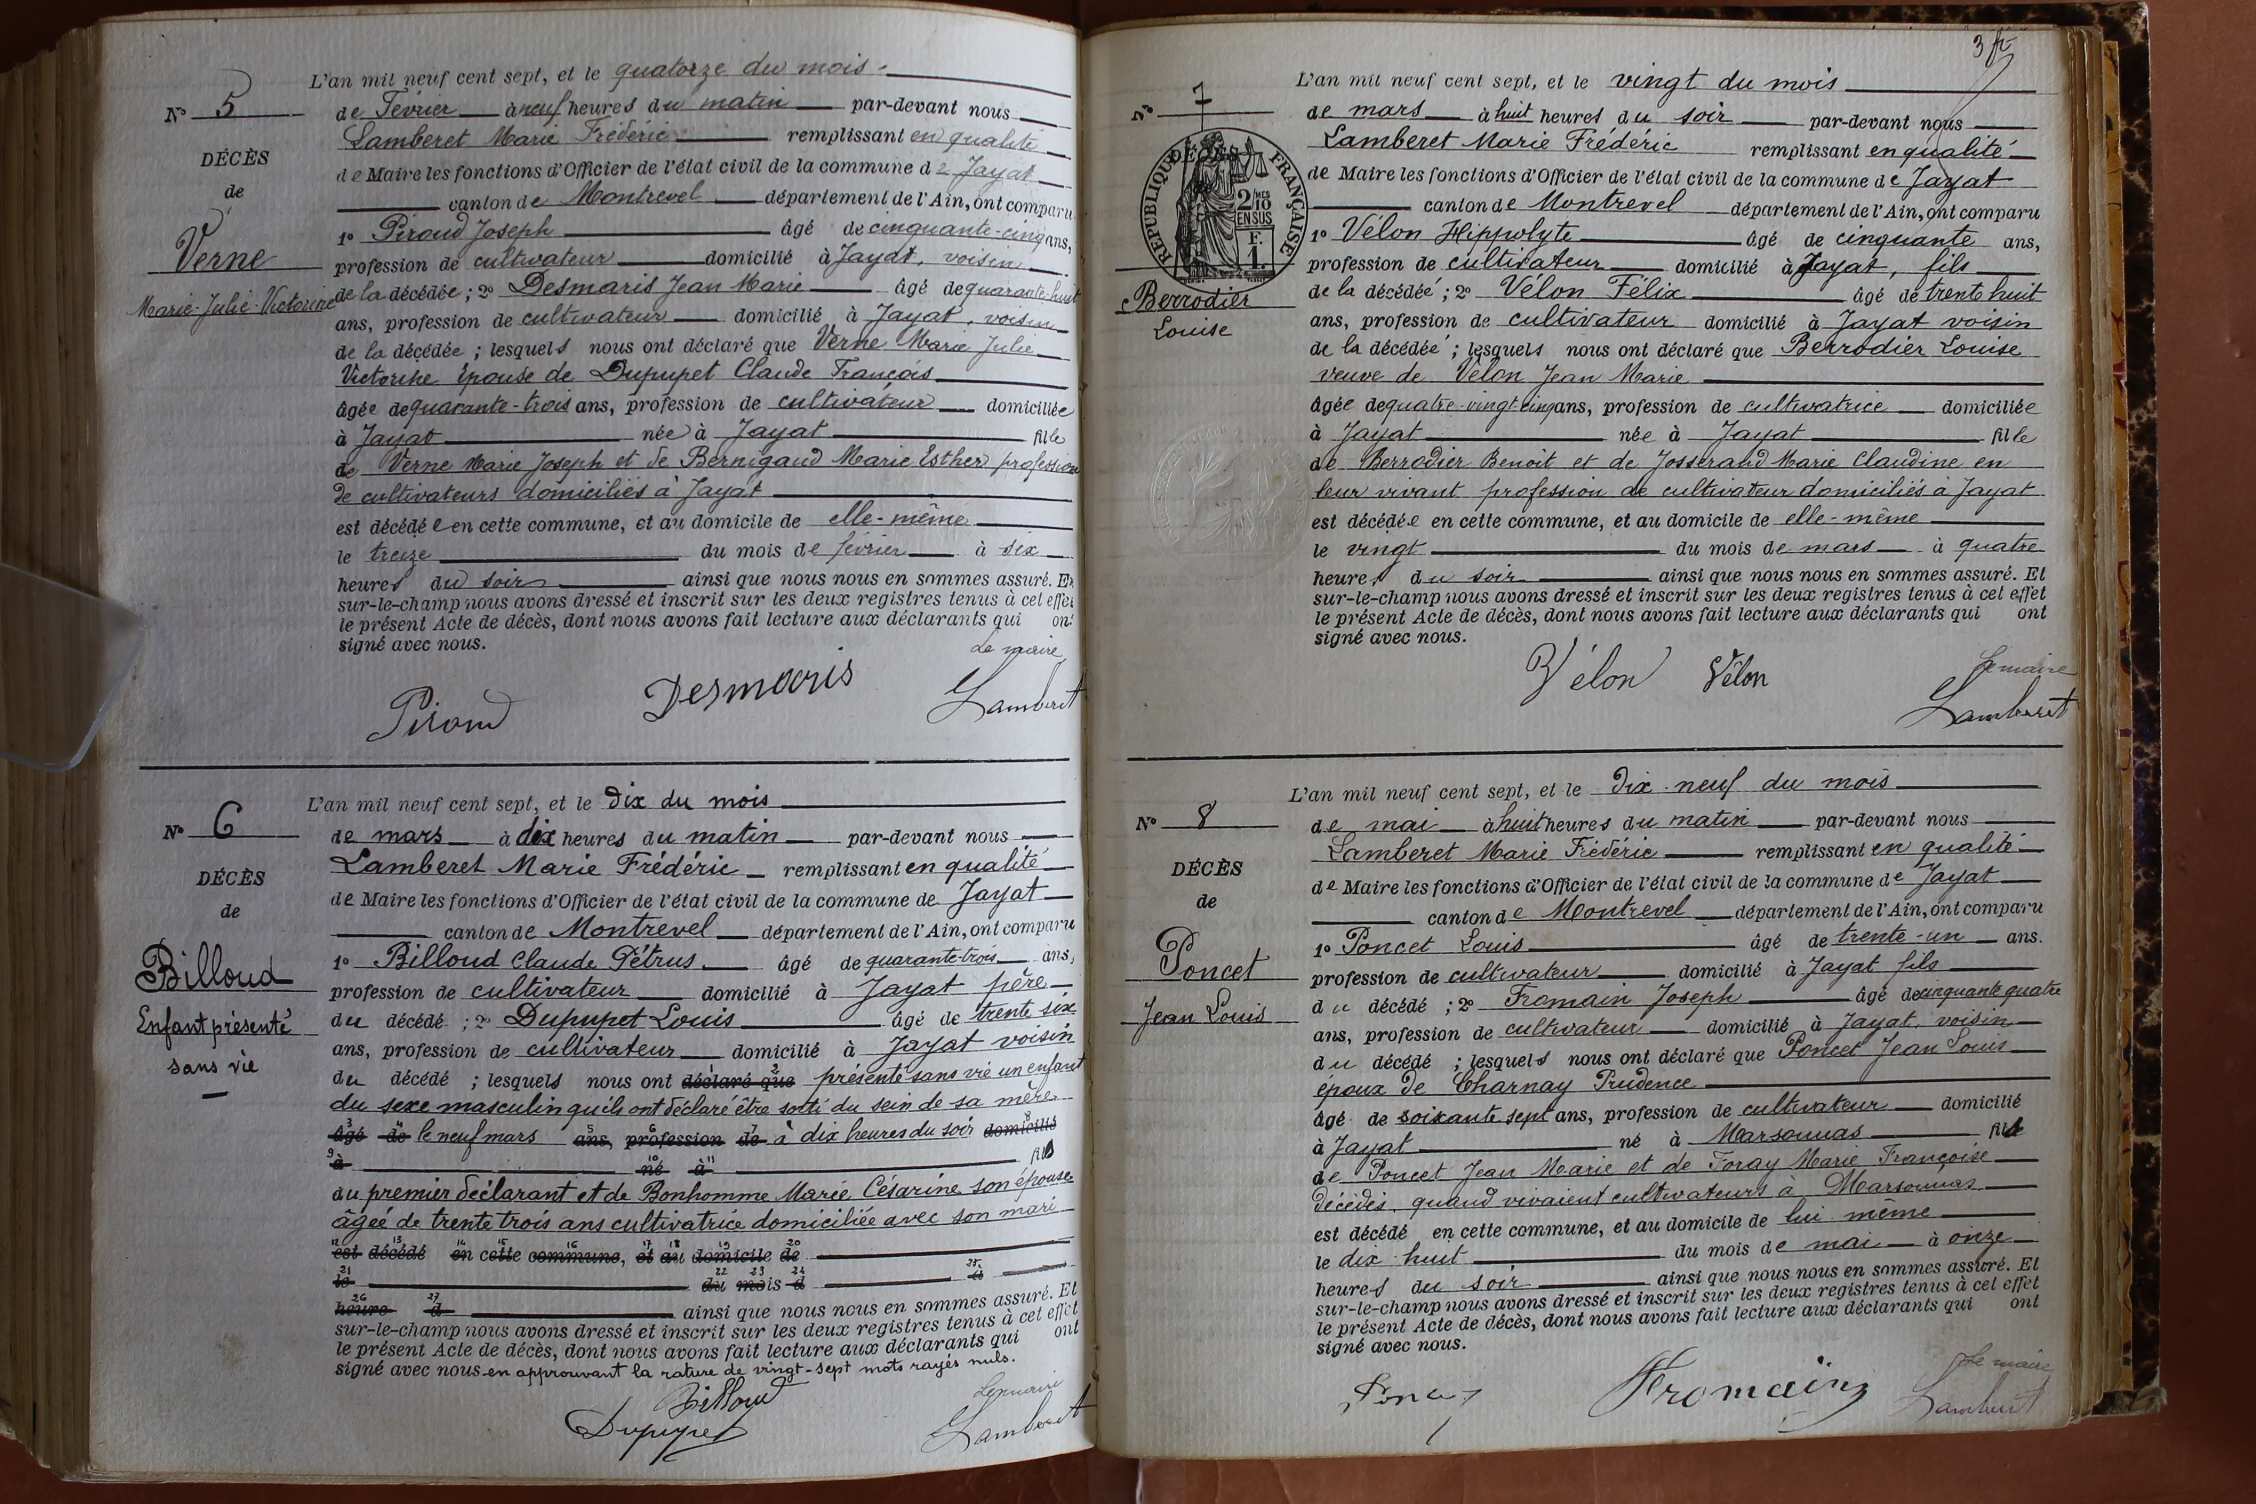 L'an mil neuf cent sept, et le quatorze du mois
N° 5
de Février à neuf heures du matin par-devant nous
Lamberet Marie Frédéric remplissant en qualité
DÉCÈS
de Maire les fonctions d'Officier de l'état civil de la commune de Jayat
de
canton de Montrevel département de l'Ain, ont comparu
1° Piroud Joseph âgé de cinquante-cinq ans,
Verne
profession de cultivateur domicilié à Jayat, voisin
Marie-Julie-Victorine
de la décédée ; 2° Desmaris Jean Marie âgé de quarante-huit
ans, profession de cultivateur domicilié à Jayat, voisin
de la décédée ; lesquels nous ont déclaré que Verne Marie Julie
Victorine épouse de Dupupet Claude François
âgée de quarante-trois ans, profession de cultivateur domiciliée
à Jayat née à Jayat fille
de Verne Marie Joseph et de Bernigaud Marie Esther profession
de cultivateurs domiciliés à Jayat
est décédée en cette commune, et au domicile de elle-même
le treize du mois de février à six
heures du soir ainsi que nous nous en sommes assuré. Et
sur-le-champ nous avons dressé et inscrit sur les deux registres tenus à cet effet
le présent Acte de décès, dont nous avons fait lecture aux déclarants qui ont
signé avec nous.
Le maire
Piroud Desmaris Lamberet
L'an mil neuf cent sept, et le dix du mois
N° 6
de mars à dix heures du matin par-devant nous
Lamberet Marie Frédéric remplissant en qualité
DÉCÈS
de Maire les fonctions d'Officier de l'état civil de la commune de Jayat
de
canton de Montrevel département de l'Ain, ont comparu
1° Billoud Claude Pétrus âgé de quarante-trois ans,
Billoud
profession de cultivateur domicilié à Jayat père
Enfant présenté
du décédé ; 2° Dupupet Louis âgé de trente six
ans, profession de cultivateur domicilié à Jayat voisin
sans vie
du décédé ; lesquels nous ont déclaré que présenté sans vie un enfant
du sexe masculin qu'ils ont déclaré être sorti du sein de sa mère
âgé de le neuf mars ans, profession de à dix heures du soir domicilié
à né à fils
du premier déclarant et de Bonhomme Marie Césarine son épouse
âgée de trente trois ans cultivatrice domiciliée avec son mari
est décédé en cette commune, et au domicile de
le du mois d à
heure d ainsi que nous nous en sommes assuré. Et
sur-le-champ nous avons dressé et inscrit sur les deux registres tenus à cet effet
le présent Acte de décès, dont nous avons fait lecture aux déclarants qui ont
signé avec nous en approuvant la rature de vingt-sept mots rayés nuls.
Billoud Le maire
Dupupet Lamberet
3 fr
L'an mil neuf cent sept, et le vingt du mois
N° 7
de mars à huit heures du soir par-devant nous
Lamberet Marie Frédéric remplissant en qualité
DÉCÈS
RÉPUBLIQUE FRANÇAISE
2/10 MES EN SUS
F. 1.
de Maire les fonctions d'Officier de l'état civil de la commune de Jayat
canton de Montrevel département de l'Ain, ont comparu
1° Vélon Hippolyte âgé de cinquante ans,
profession de cultivateur domicilié à Jayat, fils
Berrodier
de la décédée ; 2° Vélon Félix âgé de trente huit
Louise
ans, profession de cultivateur domicilié à Jayat voisin
de la décédée ; lesquels nous ont déclaré que Berrodier Louise
veuve de Vélon Jean Marie
âgée de quatre-vingt cinq ans, profession de cultivatrice domiciliée
à Jayat née à Jayat fille
de Berrodier Benoit et de Josserand Marie Claudine en
leur vivant profession de cultivateur domiciliés à Jayat
est décédée en cette commune, et au domicile de elle-même
le vingt du mois de mars à quatre
heures du soir ainsi que nous nous en sommes assuré. Et
sur-le-champ nous avons dressé et inscrit sur les deux registres tenus à cet effet
le présent Acte de décès, dont nous avons fait lecture aux déclarants qui ont
signé avec nous.
Le maire
Vélon Vélon Lamberet
L'an mil neuf cent sept, et le dix-neuf du mois
N° 8
de mai à huit heures du matin par-devant nous
Lamberet Marie Frédéric remplissant en qualité
DÉCÈS
de Maire les fonctions d'Officier de l'état civil de la commune de Jayat
de
canton de Montrevel département de l'Ain, ont comparu
1° Poncet Louis âgé de trente-un ans.
Poncet
profession de cultivateur domicilié à Jayat fils
Jean Louis
du décédé ; 2° Fromain Joseph âgé de cinquante quatre
ans, profession de cultivateur domicilié à Jayat, voisin
du décédé ; lesquels nous ont déclaré que Poncet Jean Louis
époux de Charnay Prudence
âgé de soixante sept ans, profession de cultivateur domicilié
à Jayat né à Marsonnas fils
de Poncet Jean Marie et de Foray Marie Françoise
décédés, quand vivaient cultivateurs à Marsonnas
est décédé en cette commune, et au domicile de lui même
le dix-huit du mois de mai à onze
heures du soir ainsi que nous nous en sommes assuré. Et
sur-le-champ nous avons dressé et inscrit sur les deux registres tenus à cet effet
le présent Acte de décès, dont nous avons fait lecture aux déclarants qui ont
signé avec nous.
Le maire
Poncet Fromain Lamberet